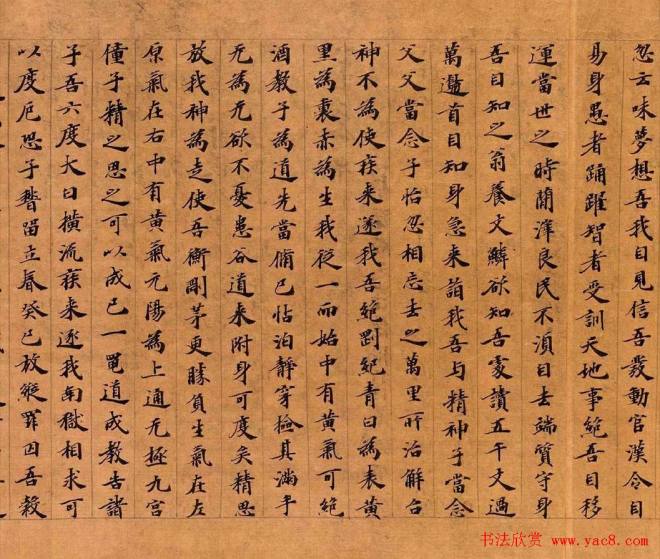 忽云味夢想吾我自見信吾發動官漢令自
易身愚者踊躍智者受訓天地事絕吾自移
運當世之時簡滓良民不須自去端質守身
吾自知之翁養文鱗欲知吾處讀五千文過
萬遍首自知身急來詣我吾與精神子當念
父父當念子怡忽相忘去之萬里所治解台
神不為使疾來逐我吾絕剛紀青白為表黃
里為裏赤為生我從一而始中有黃氣可絕
酒教子為道先當脩己恬泊靜穿檢其滿手
无為无欲不憂患谷道來附身可度矣精思
放我神為走使吾衡剛茅更勝負生氣在左
原氣在右中有黃氣元陽為上通无極九宮
僮子精之思之可以成己一黽道成教告諸
子吾六度大白橫流疾來逐我南獄相求可
以度厄恐子稽留立春癸巳放縱罪囚吾穀
书法欣赏
www.yac8.com